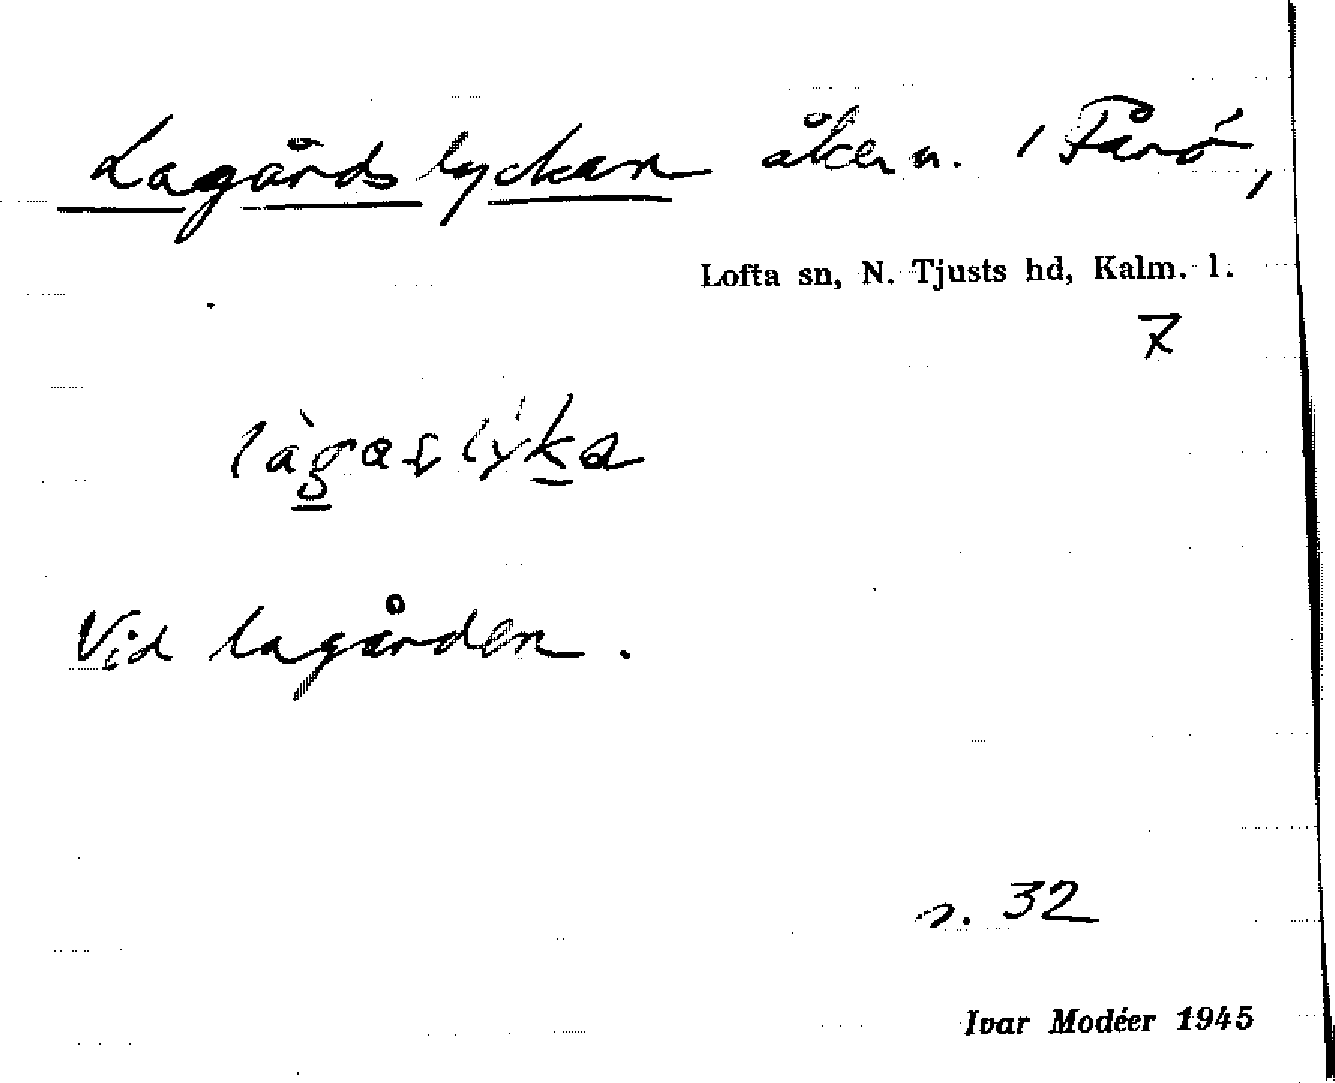 Lagårdslyckan åkern. i Fårö,
Lofta sn, N. Tjusts hd, Kalm. l.
7
làgaslýka
Vid lagården.
s. 32
Ivar Modéer 1945